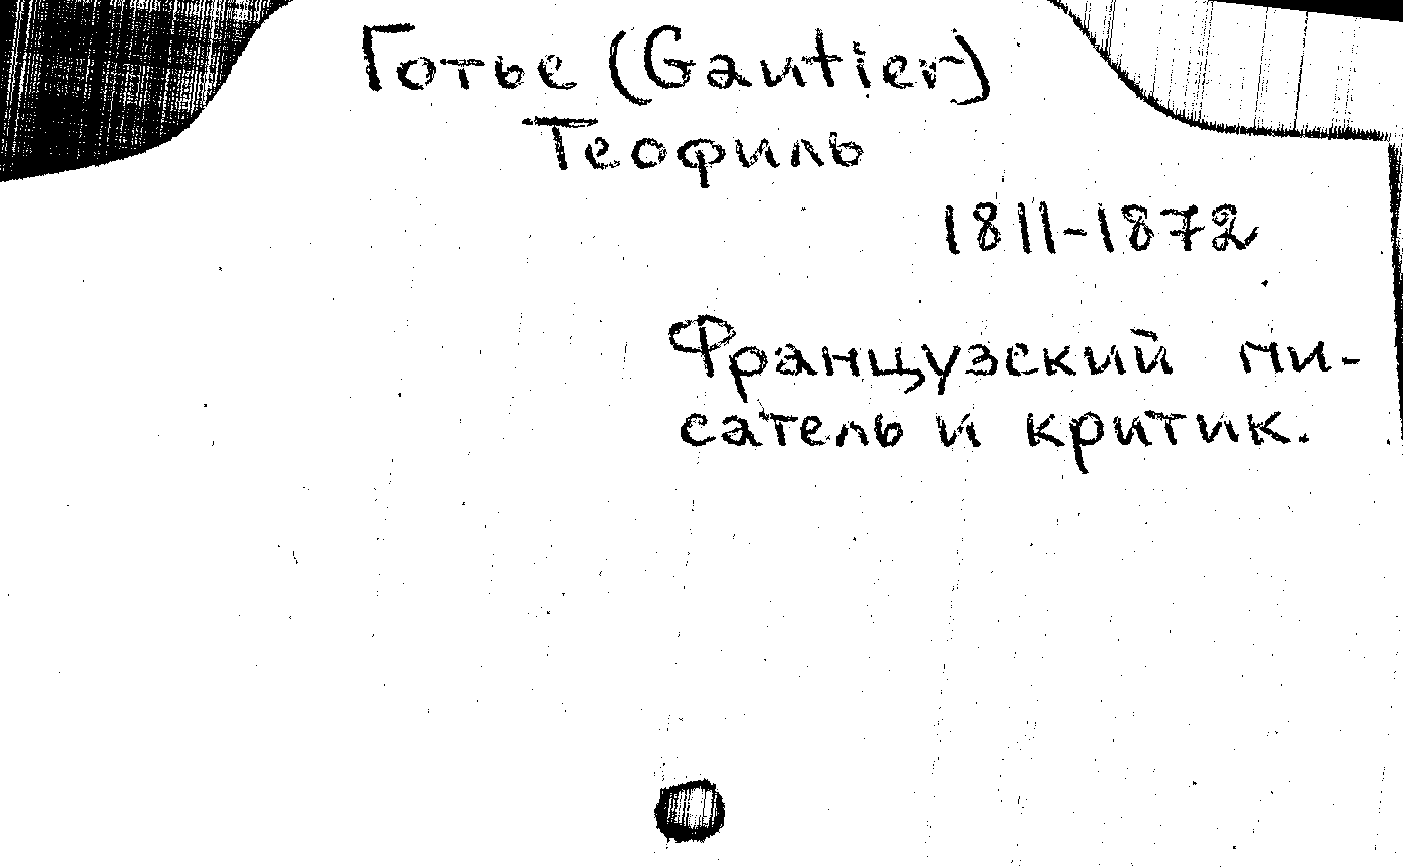 Готье (Gautier)
Теофиль
1811-1872
Французский пи-
сатель и критик.